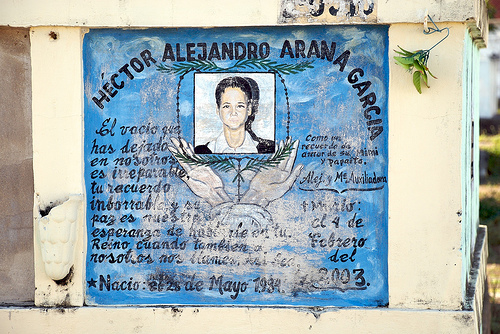 HÉCTOR ALEJANDRO ARANA GARCIA
El vacio que
has dejado
en nosotros
es irreparable,
tu recuerdo
inborrable, y su
paz es nuestra
esperanza de
Reino, cuando tambien a
nosotros nos llames.
★ Nacio: el 28 de Mayo 1934.
Como un
recuerdo de
amor de su mimi
y papaito.
Alej. y Mª Auxiliadora
Murio:
el 4 de
Febrero
del
2003.